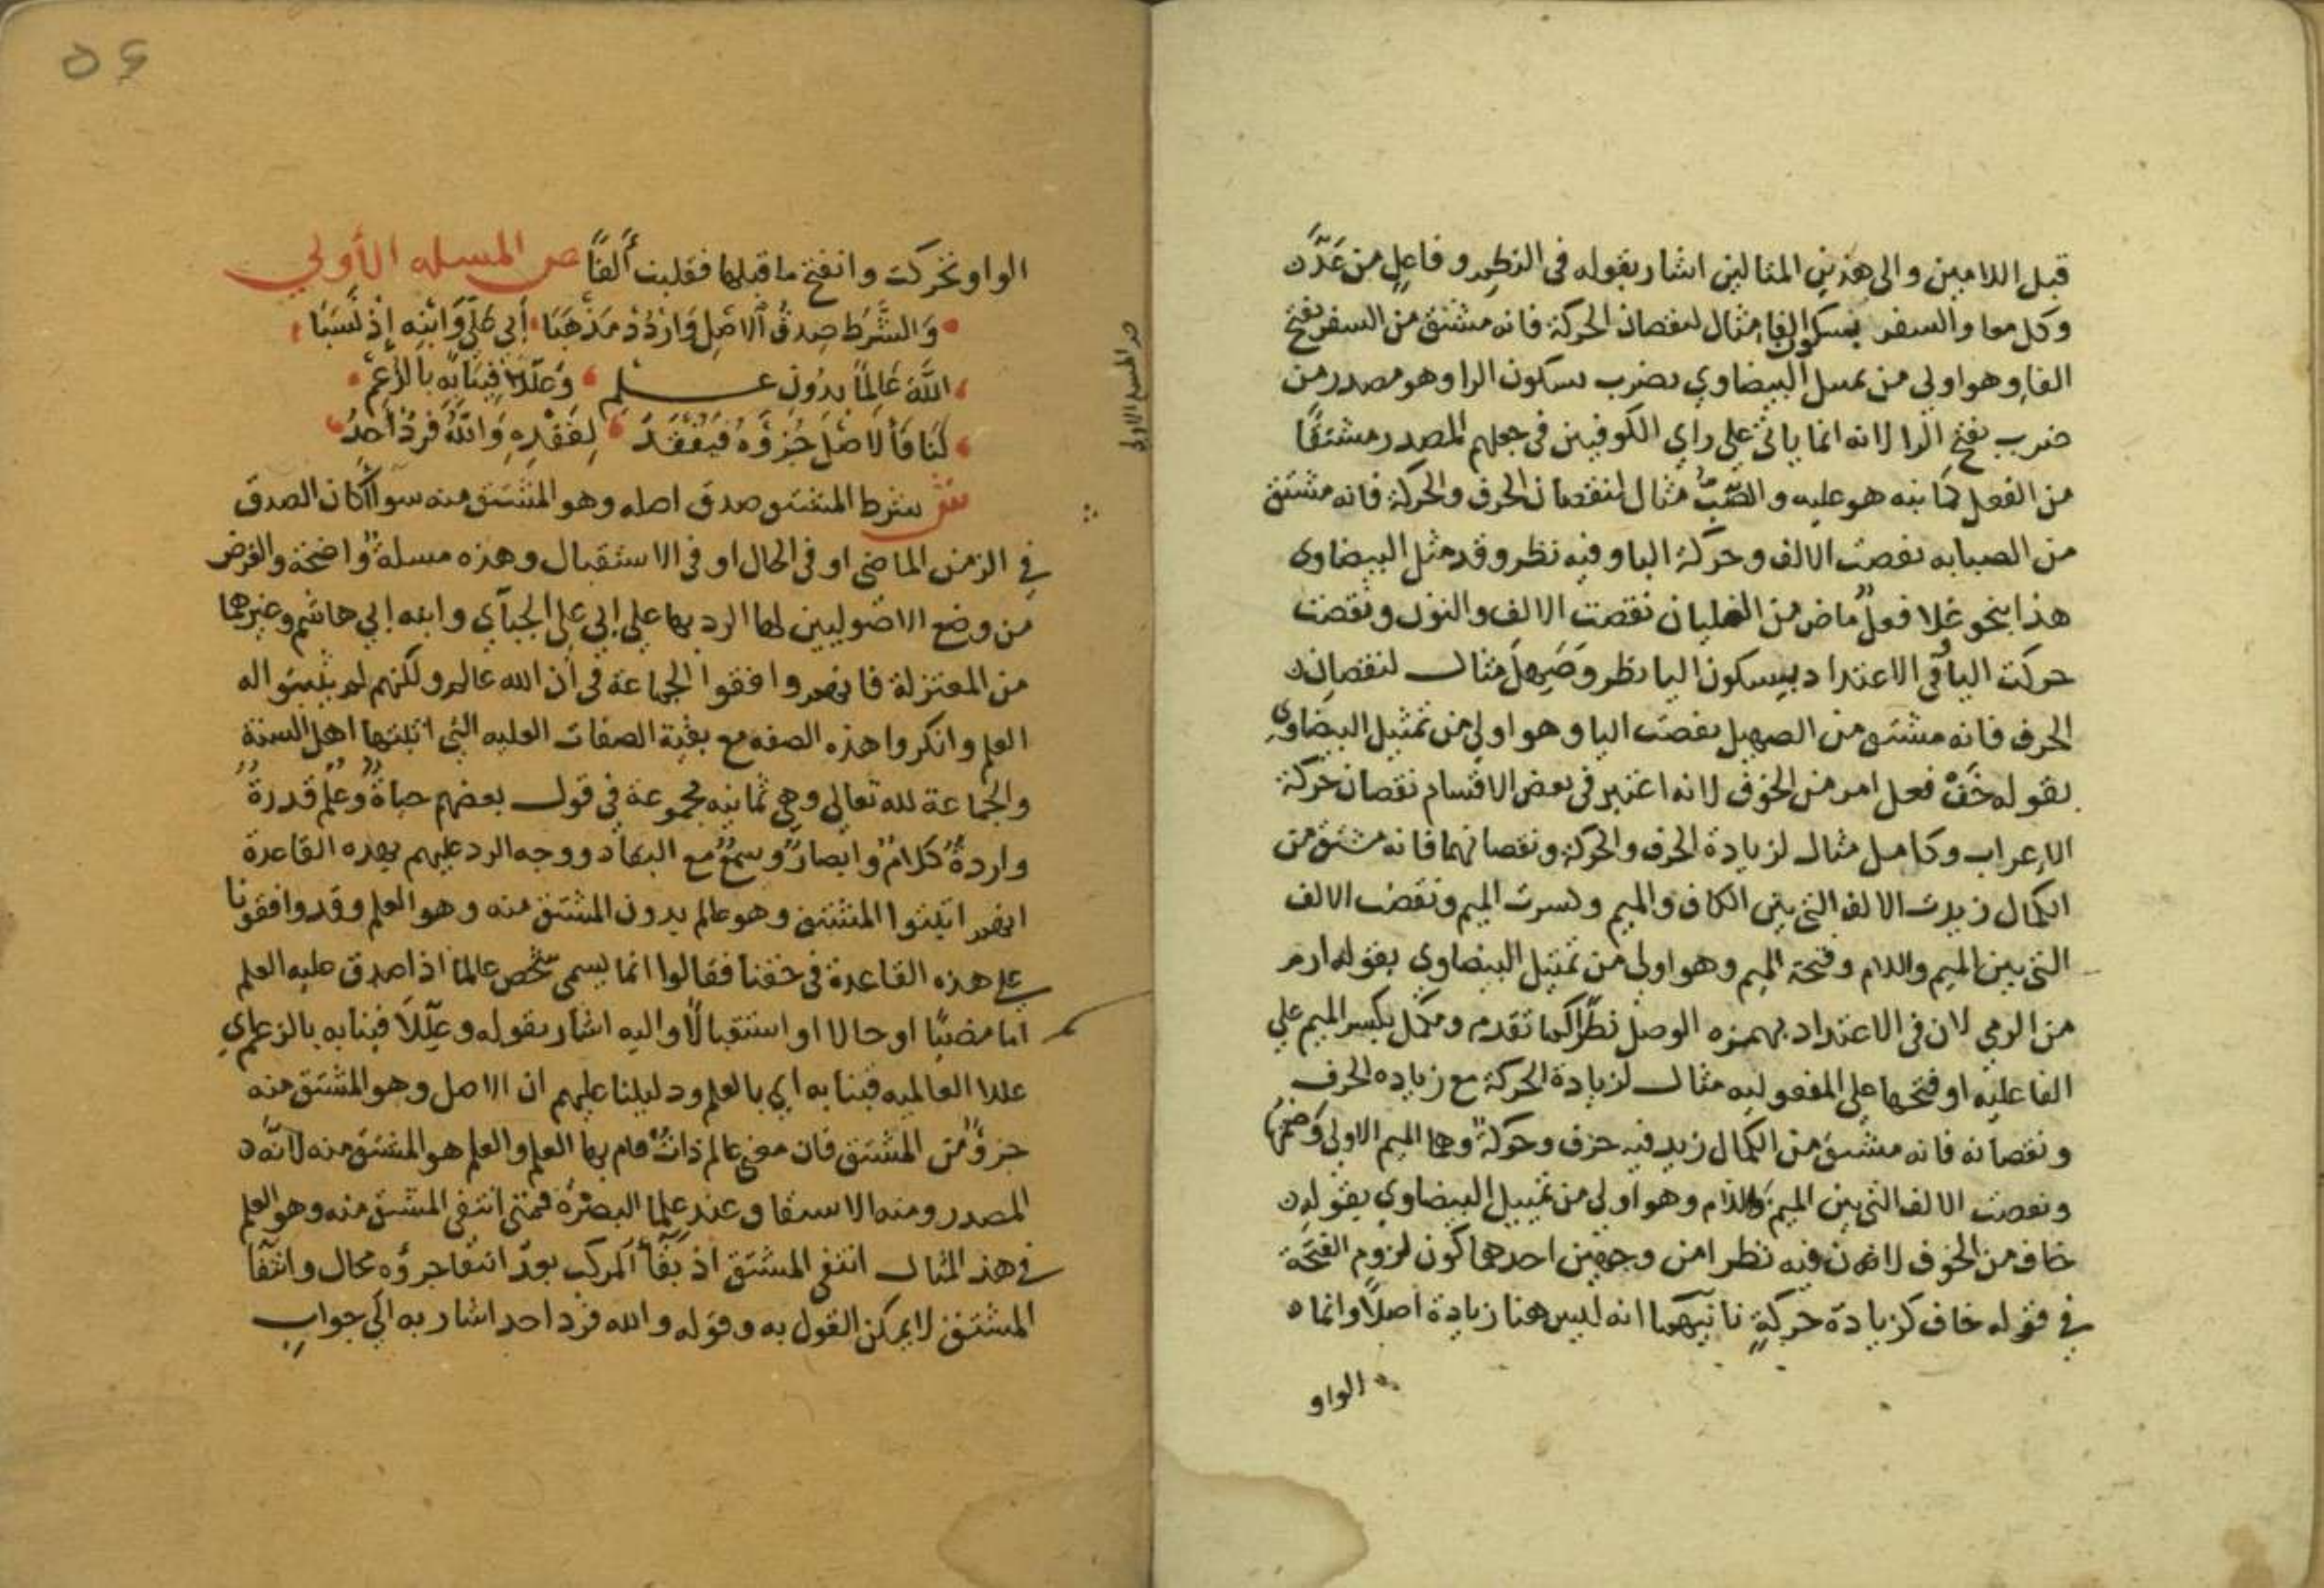 قبل اللامين والى هذين المثالين اشار بقوله فى النظم وفاعل من عدّ
وكل معا والسفر بسكون الفا مثال لنقصان الحركة فانه مشتق من السفر بفتح
الفا وهو اولي من تمثيل البيضاوي بضرب بسكون الرا وهو مصدر من
ضرب بفتح الرا لانه انما ياتي علي راي الكوفيين فى جعلهم المصدر مشتقًا
من الفعل كما نبه هو عليه والصّبّ مثال لنقصان الحرف والحركة فانه مشتق
من الصبابه نقصت الالف وحركة البا وفيه نظر وقد مثل البيضاوى
هذا بنحو غلا فعل ماض من الغليان نقصت الالف والنون ونقصت
حركت اليا وفى الاعتداد بسكون اليا نظر وصَهِل مثال لنقصان
الحرف فانه مشتق من الصهيل نقصت اليا وهو اولي من تمثيل البيضاوي
بقوله خَفْ فعل امر من الخوف لانه اعتبر فى بعض الاقسام نقصان حركة
الإعراب وكامل مثال لزيادة الحرف والحركة ونقصانهما فانه مشتق من
الكمال زيدت الالف التي بين الكاف والميم وكسرت الميم ونقصت الالف
التي بين الميم واللام وفتحة الميم وهو اولي من تمثيل البيضاوي بقوله ارم
من الرمي لان فى الاعتداد بهمزه الوصل نظرًا كما تقدم ومكمّل بكسر الميم علي
الفاعليه او فتحها علي المفعوليه مثال لزيادة الحركة مع زياده الحرف
ونقصانه فانه مشتق من الكمال زيد فيه حرف وحركة وهما الميم الاولي وضمها
ونقصت الالف التي بين الميم واللام وهو اولي من تمثيل البيضاوي بقوله
خاف من الخوف لان فيه نظرا من وجهين احدهما كون لزوم الفتحة
في قوله خاف كزيادة حركةٍ ثانيهما انه ليس هنا زيادة اصلاً وانما
الواو
٥٤
الواو تحركت وانفتح ما قبلها فقلبت ألفًا ص المسله الأولي
وَالشَّرط صِدقُ الاصْلِ وَارْدُدْ مَذْهَبَا أبي عَلي وَابْنِه إذْ نَسَبَا
اللَّهَ عَالِمًا بدُونِ علم وعَلَّلا فِينَا بِه بالزعم
لَنَا فَالاصْلَ جُزؤهُ فَيُفْقَدُ لِفَقْدِهِ وَاللّهُ فردٌ أحدُ
ش شرط المشتق صدق اصله وهو المشتق منه سواً كان الصدق
في الزمن الماضي او فى الحال او فى الاستقبال وهذه مسلة واضحة والغرض
من وضع الاصوليين لها الرد بها علي ابي علي الجبآي وابنه ابي هاشم وغيرهما
من المعتزلة فانهم وافقوا الجماعة في أن الله عالم ولكنهم لم يثبتوا له
العلم وانكروا هذه الصفه مع بقية الصفات العليه التي اثبتها اهل السنة
والجماعة لله تعالي وهي ثمانيه مجموعة في قول بعضهم حياةٌ وعلمٌ قدرةٌ
وارادةٌ كلامٌ وابصارٌ وسمعٌ مع البقا ووجه الرد عليهم بهذه القاعدة
انهم اثبتوا المشتق وهو عالم بدون المشتق منه وهو العلم وقد وافقونا
علي هذه القاعدة في حقنا فقالوا انما يسمى شخص عالمًا اذا صدق عليه العلم
اما مضيًا او حالا او استقبالًا واليه اشار بقوله وعلّلا فينا به بالزعم اي
عللا العالميه فينا به اي بالعلم ودليلنا عليهم ان الاصل وهو المشتق منه
جزؤ من المشتق فان معني عالم ذات قام بها العلم والعلم هو المشتق منه لانه
المصدر ومنه الاشتقاق عند علما البصرة فمتي انتفى المشتق منه وهو العلم
في هذ المثال انتفى المشتق اذ بقآ المركب بعد انتفا جزؤه محال وانتفآ
المشتق لا يمكن القول به وقوله والله فرد احد اشار به الي جواب